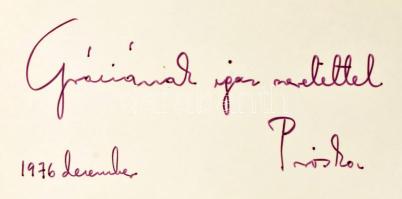 Gráciának igaz szeretettel
Piroska
1976 december